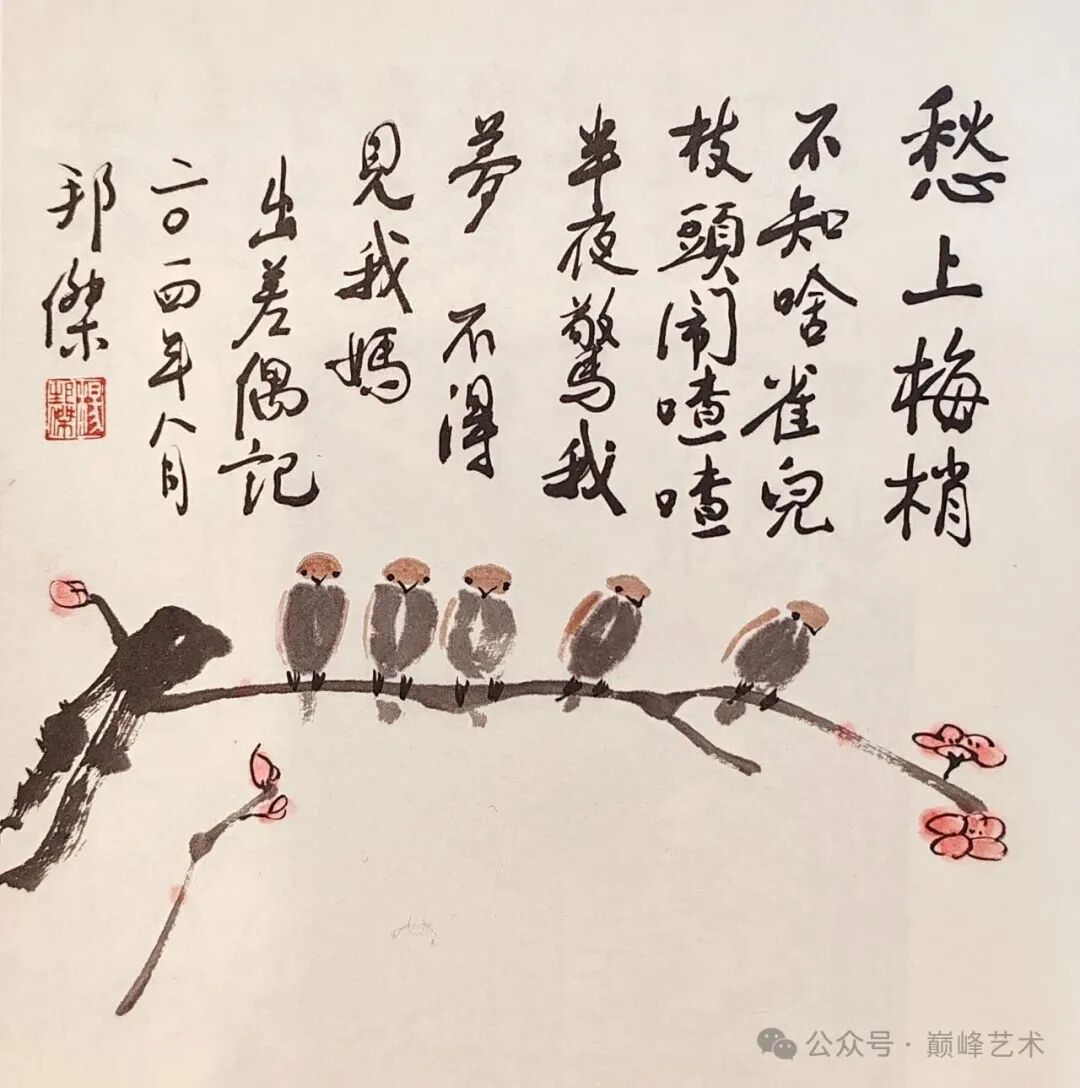 愁上梅梢
不知啥雀兒
枝頭闹喳喳
半夜驚我
夢 不得
見我媽
出差偶記
二〇一四年八月
邦傑
公众号 · 巅峰艺术